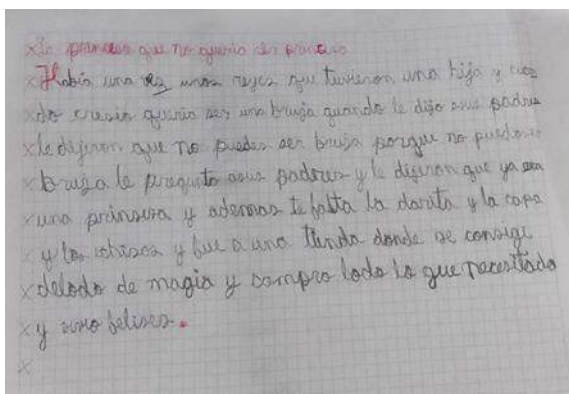 x La princesa que no queria ser princesa
x Había una vez unos reyes que tuvieron una hija y cuan
x do crecio queria ser una bruja quando le dijo asus padres
x le dijeron que no puedes ser bruja porque no puedo
x bruja le pregunto asus padres y le dijeron que ya era
x una prinsesa y ademas te falta la la capa
x y los y fue a una tienda donde se consige
x detodo de magia y compro todo lo que necesitado
x y felises.
x